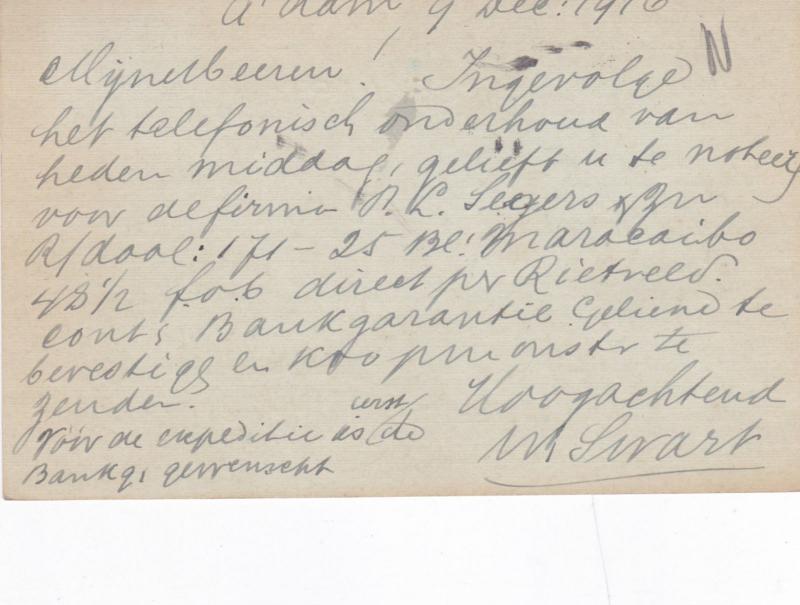 A'dam 9 Dec: 1916
N
Mijne Heeren! Ingevolge
het telefonisch onderhoud van
heden middag, gelieft u te noteeren
voor de firma P. L. Segers & Zn
R/daal: 171 - 25 Bl: Maracaibo
48 1/2 f.o.b direct per Rietveld.
cont: Bankgarantie Geliend te
bevestige en koopmonstr te
zenden.
Hoogachtend
Voor de expeditie is eerst de
Bankg, gewenscht
M Swart